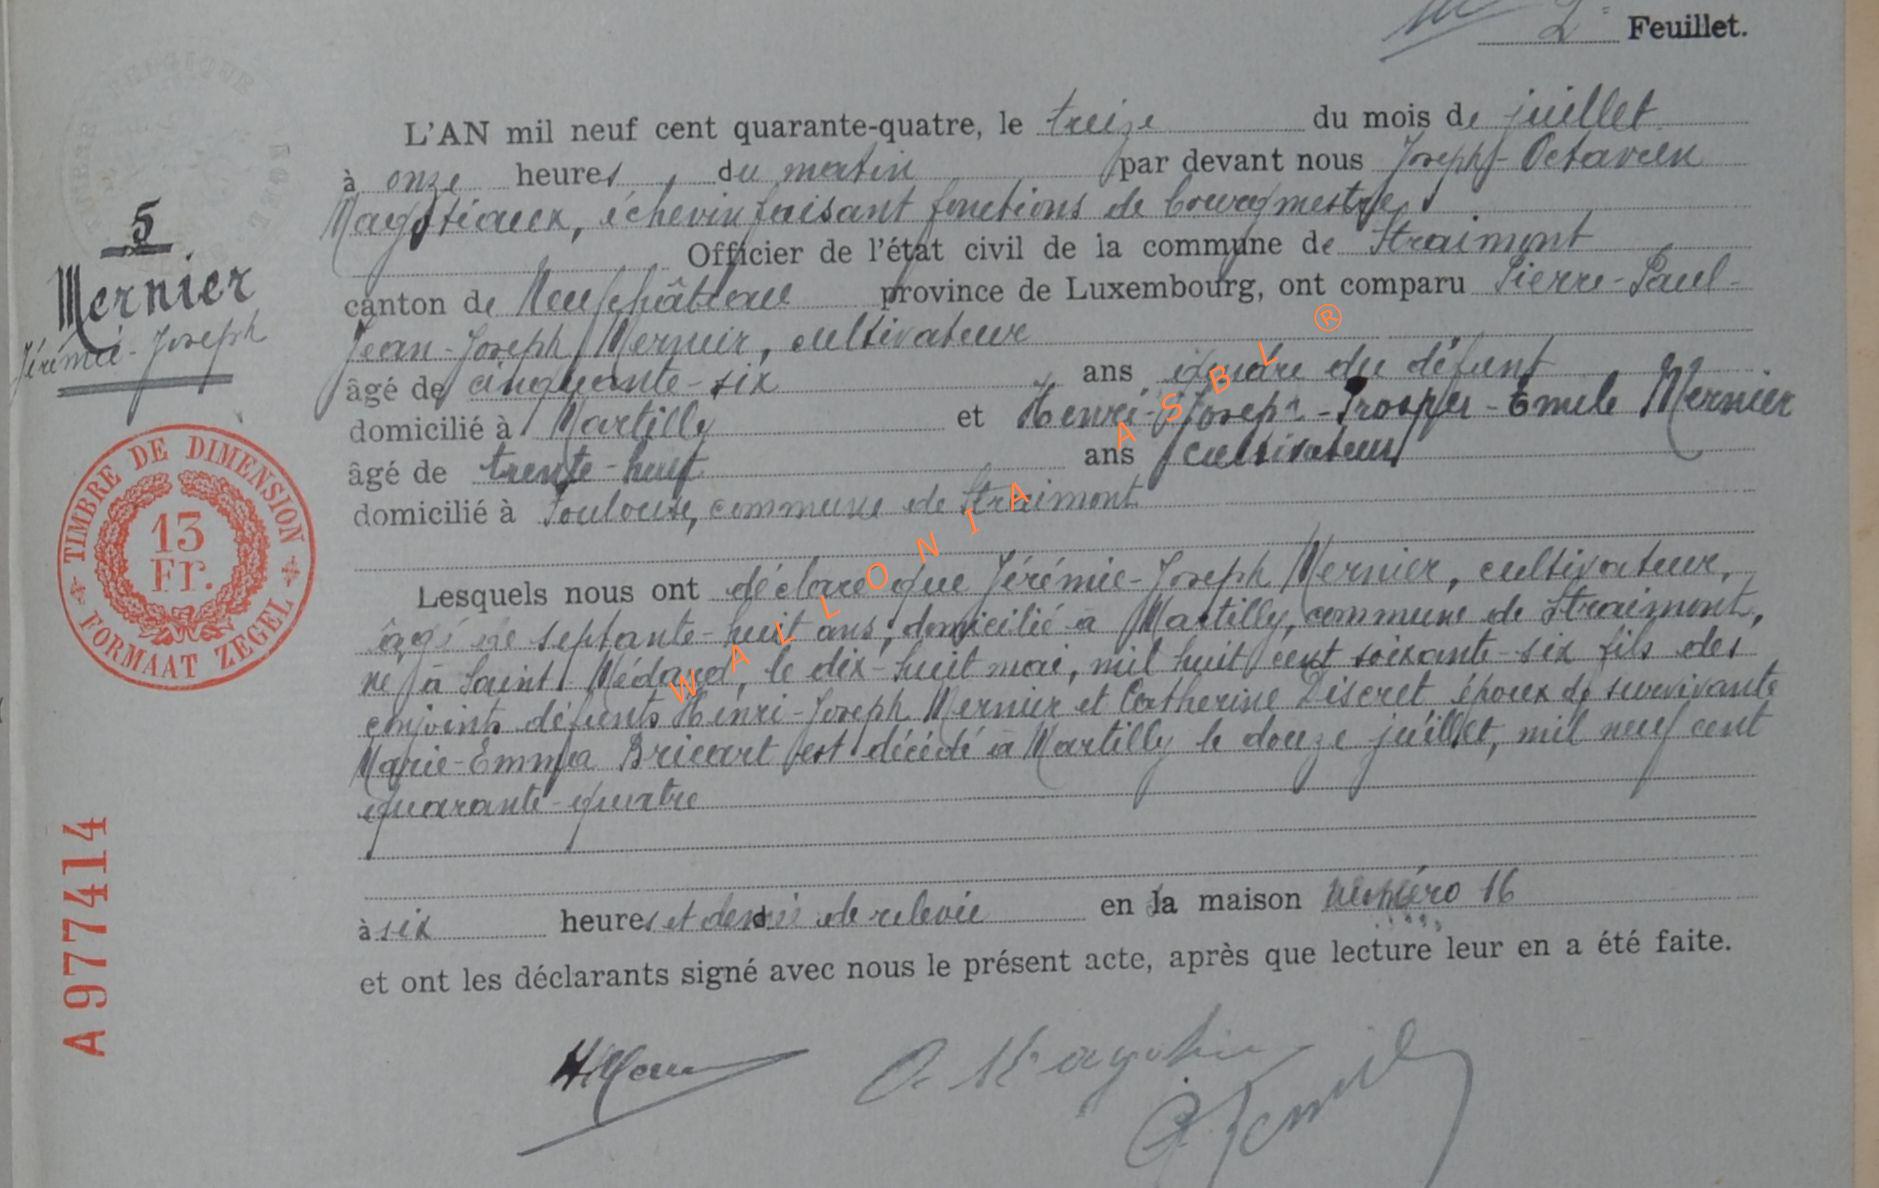 2e Feuillet.
L'AN mil neuf cent quarante-quatre, le treize du mois de juillet
à onze heures du matin par devant nous Joseph-Octavien
Magotiaux, échevin faisant fonctions de bourgmestre,
Officier de l'état civil de la commune de Straimont
canton de Neufchâteau province de Luxembourg, ont comparu Pierre-Paul-
Jean-Joseph Mernier, cultivateur
âgé de cinquante-six ans gendre du défunt
domicilié à Martilly et Henri-Joseph-Prosper-Emile Mernier
âgé de trente-huit ans cultivateur
domicilié à Toulouse, commune de Straimont
Lesquels nous ont déclaré que Jérémie-Joseph Mernier, cultivateur,
âgé de septante-huit ans, domicilié à Martilly, commune de Straimont,
né à Saint Médard, le dix-huit mai, mil huit cent soixante-six fils des
conjoints défunts Henri-Joseph Mernier et Catherine Discret époux de survivante
Marie-Emma Bricart est décédé à Martilly le douze juillet, mil neuf cent
quarante-quatre
à six heures et demie de relevée en la maison numéro 16
et ont les déclarants signé avec nous le présent acte, après que lecture leur en a été faite.
5
Mernier
Jérémie-Joseph
TIMBRE DE DIMENSION
13
Fr.
FORMAAT ZEGEL
A977414
WALLONIA ASBL ®